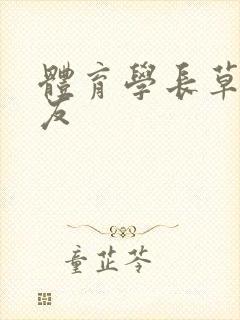 體育學長草
友
童芷苓